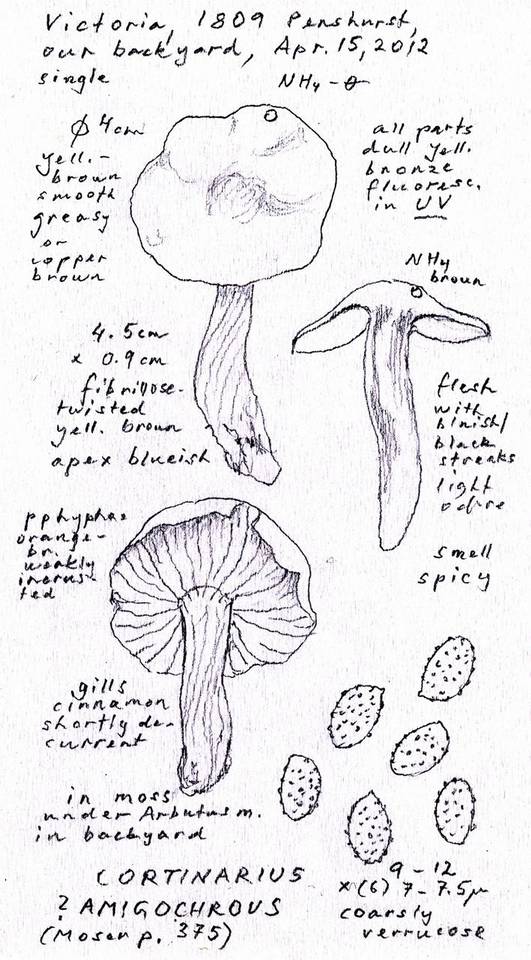 Victoria, 1809 Penshurst,
our backyard, Apr. 15, 2012
single
NH4 - θ
Ø 4cm
yell.-
brown
smooth
greasy
or
copper
brown
all parts
dull yell.
bronze
fluoresc.
in UV
NH4
brown
4.5cm
x 0.9cm
fibrillose-
twisted
yell. brown
apex blueish
flesh
with
bluish/
black
streaks
light
ochre
smell
spicy
pphyphae
orange-
br.
weakly
incrus-
ted
gills
cinnamon
shortly de-
current
in moss
under Arbutus m.
in backyard
CORTINARIUS
? AMIGOCHROUS
(Moser p. 375)
9 - 12
x (6) 7 - 7.5µ
coarsly
verrucose